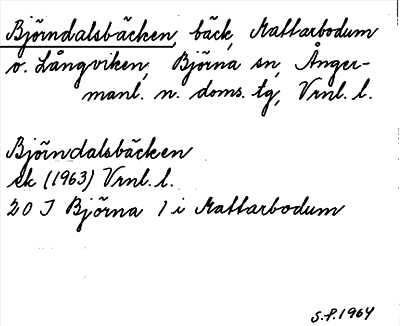 Björndalsbäcken, bäck, Mattarbodum
o. Långviken, Björna sn, Ånger-
manl. n. doms. tg, Vrnl. l.
Björndalsbäcken
ek (1963) Vrnl. l.
20 J Björna 1 i Mattarbodum
S.F. 1964